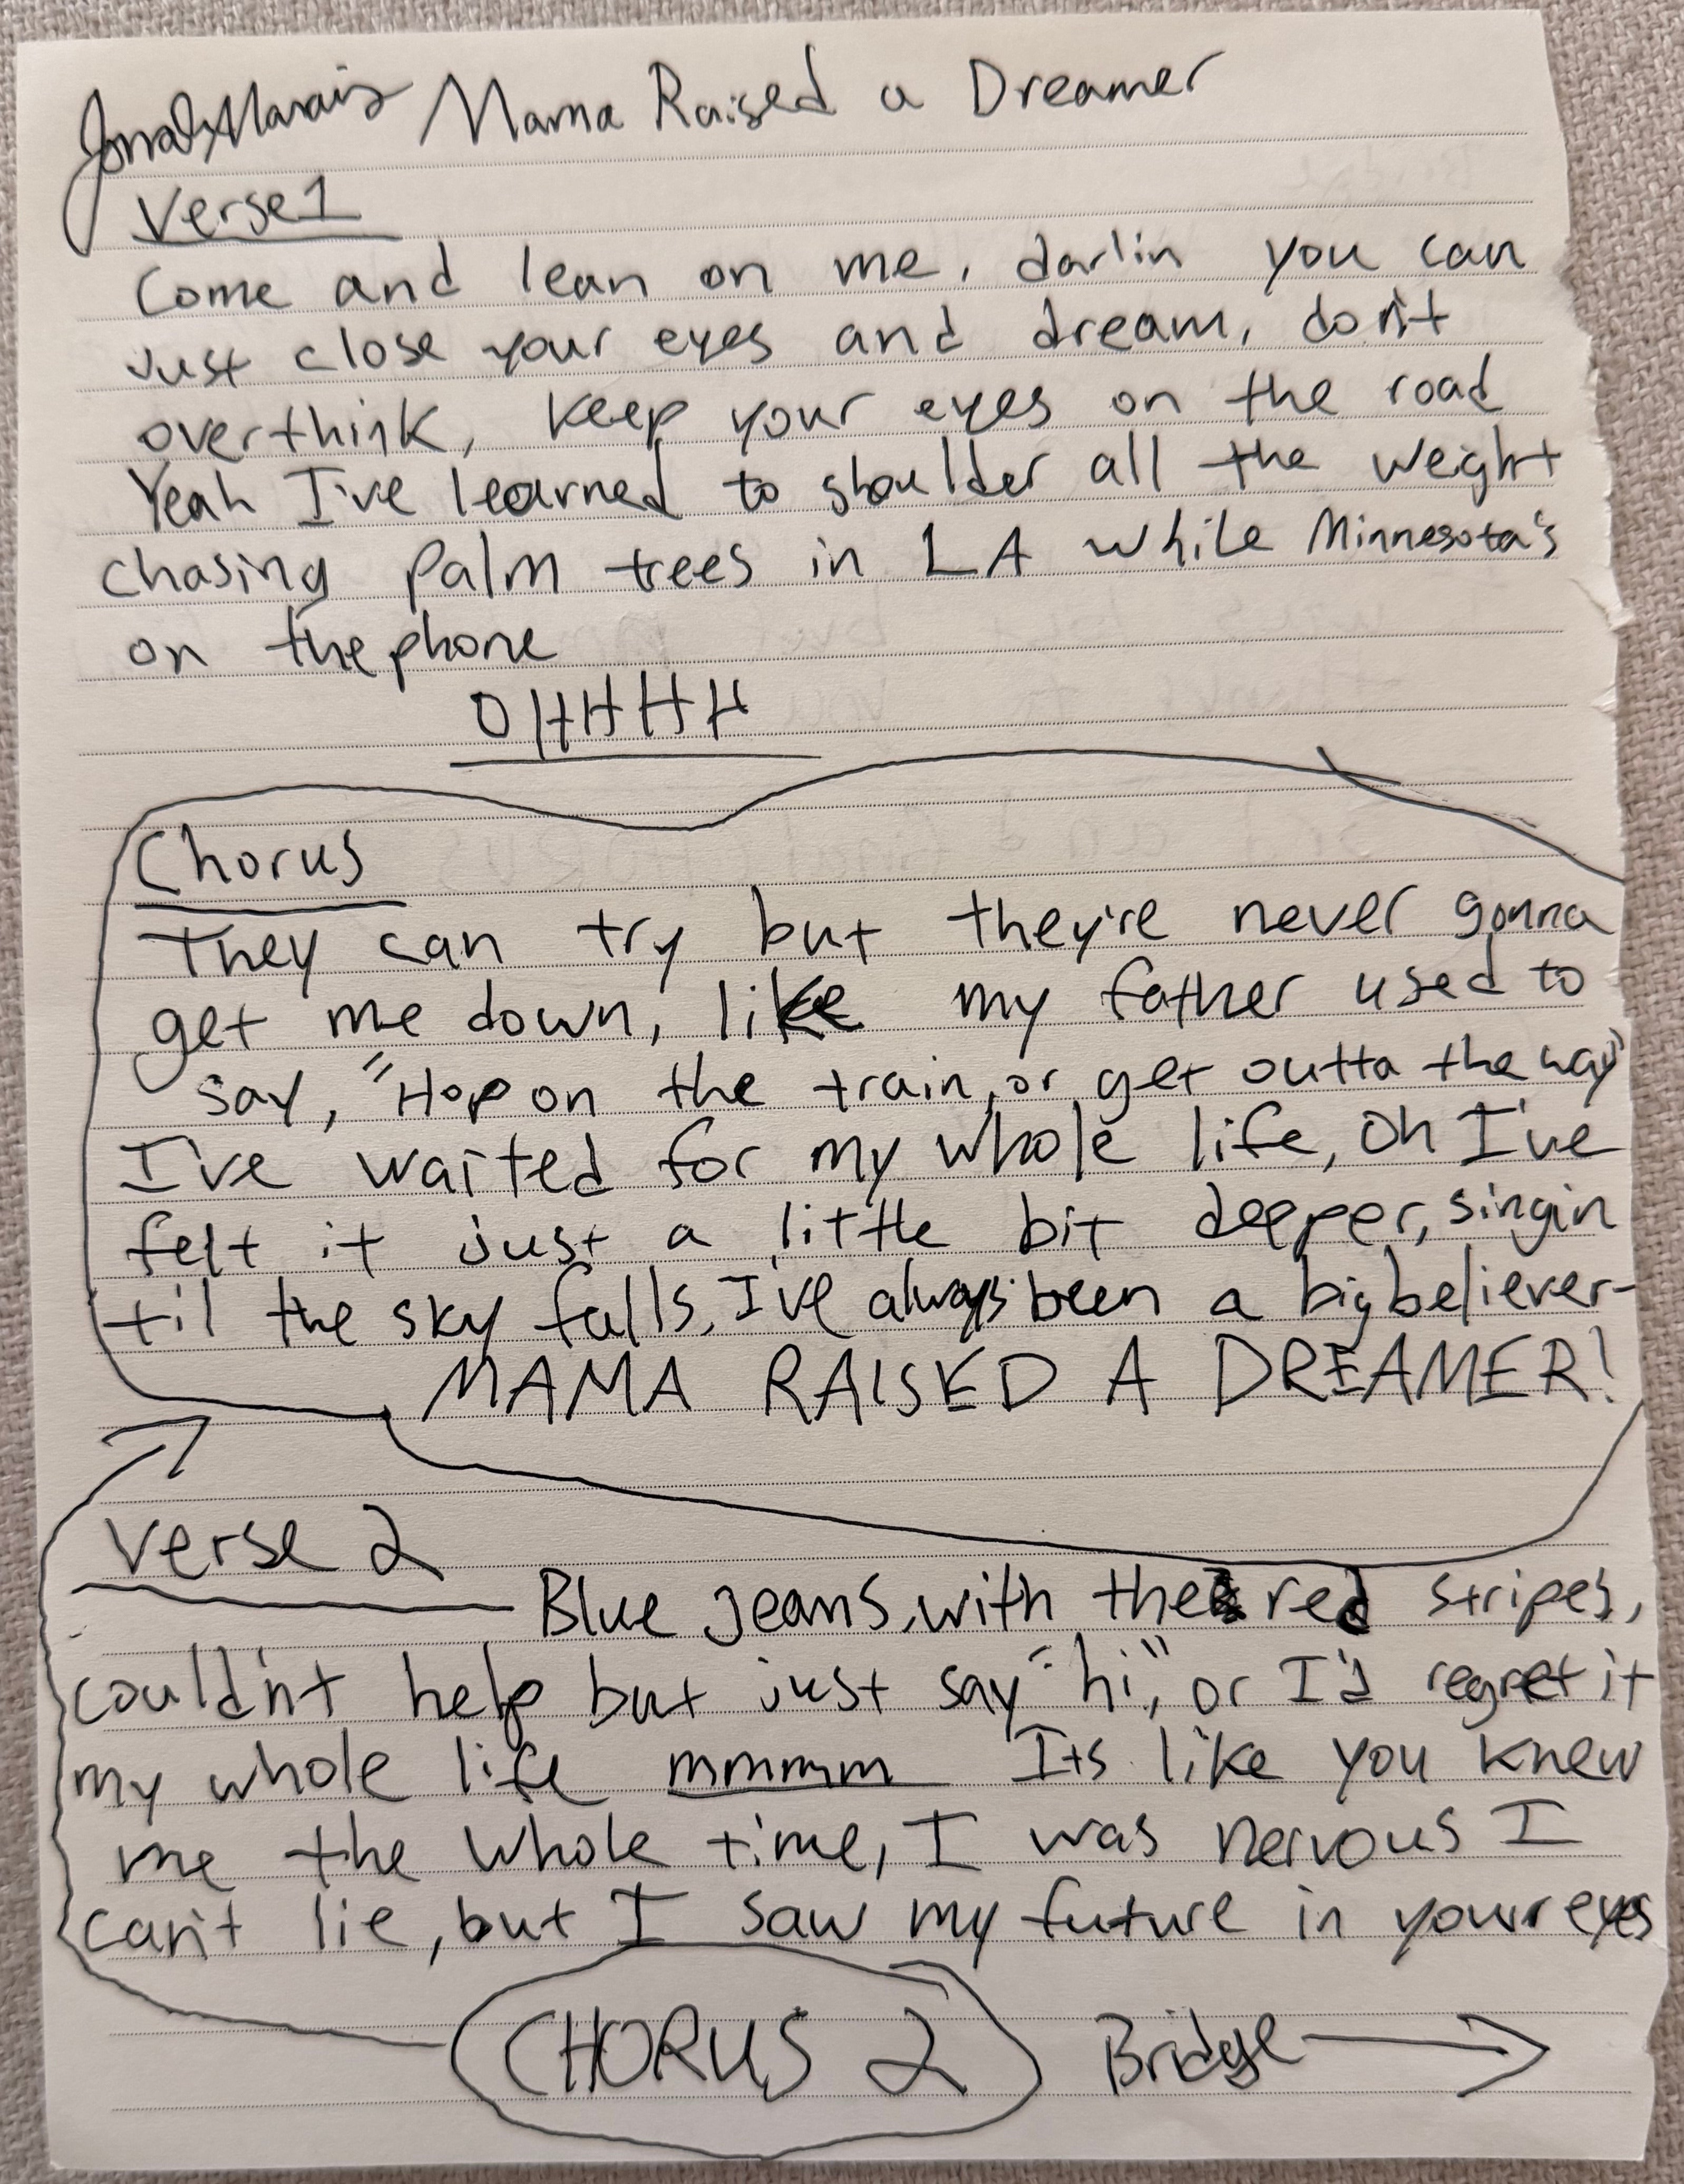 Jonah Marais Mama Raised a Dreamer
Verse 1
Come and lean on me, darlin you can
Just close your eyes and dream, don't
overthink, keep your eyes on the road
Yeah I've learned to shoulder all the weight
chasing palm trees in LA while Minnesota's
on the phone
OHHHH
Chorus
They can try but they're never gonna
get me down, like my father used to
say, "Hop on the train, or get outta the way"
I've waited for my whole life, Oh I've
felt it just a little bit deeper, singin
til the sky falls, I've always been a big believer-
MAMA RAISED A DREAMER!
Verse 2
Blue jeans, with the red stripes,
couldn't help but just say "hi", or I'd regret it
my whole life mmmmm Its like you knew
me the whole time, I was nervous I
can't lie, but I saw my future in your eyes
CHORUS 2 Bridge